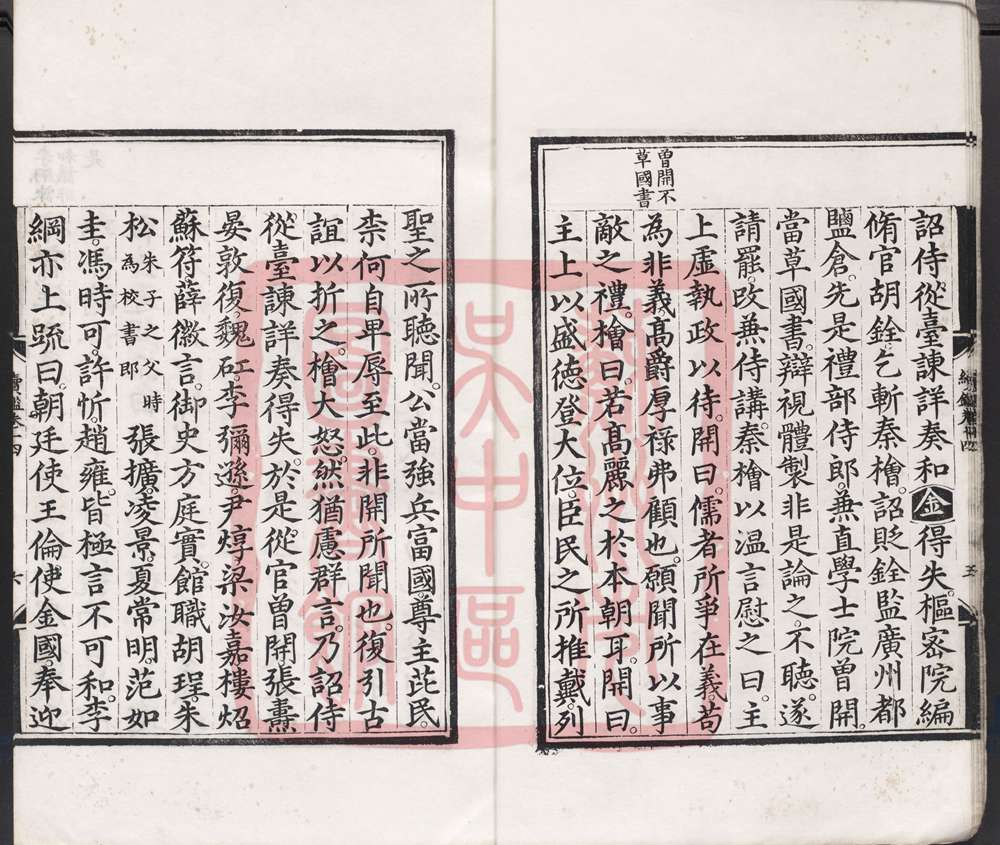 曾開不
草國書
詔侍從臺諫詳奏和金得失。樞密院編
脩官胡銓乞斬秦檜。詔貶銓監廣州都
鹽倉。先是禮部侍郎。兼直學士院曾開。
當草國書。辯視體製非是論之。不聽。遂
請罷改兼侍講。秦檜以温言慰之曰。主
上虛執政以待。開曰。儒者所爭在義。苟
為非義髙爵厚祿弗顧也。願聞所以事
敵之禮。檜曰。若髙麗之於本朝耳。開曰。
主上以盛徳登大位。臣民之所推戴。列
聖之所聽聞。公當強兵富國。尊主芘民。
柰何自卑辱至此。非開所聞也。復引古
誼以折之。檜大怒。然猶慮群言。乃詔侍
從臺諫詳奏得失。於是從官曾開。張燾
晏敦復。魏矼。李彌遜。尹焞。梁汝嘉。樓炤
蘇符。薛徽言。御史方庭實。館職胡珵。朱
松朱子之父時為校書郎張擴。凌景夏。常明。范如
圭。馮時可。許忻。趙雍。皆極言不可和。李
綱亦上䟽曰。朝廷使王倫使金國。奉迎
五
六
吳中區
圖書館